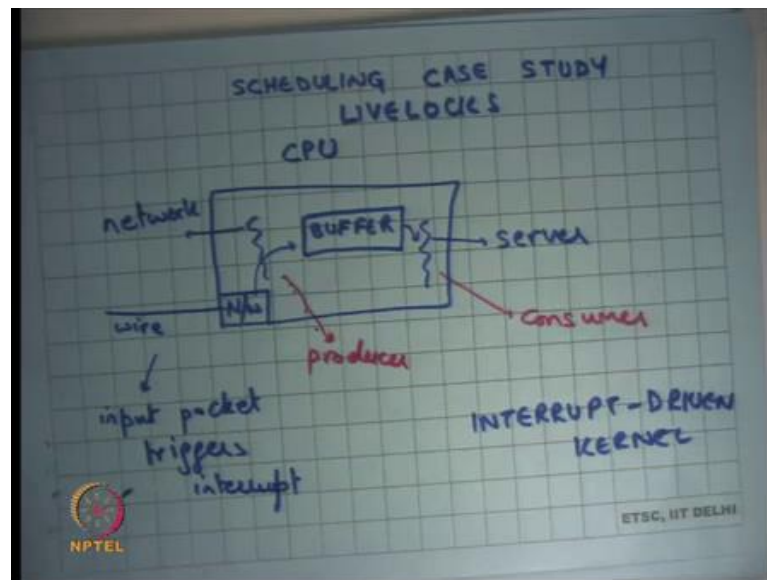 SCHEDULING CASE STUDY
LIVELOCKS
CPU
network
BUFFER
server
N/W
wire
producer
consumer
input packet
triggers
interrupt
INTERRUPT-DRIVEN
KERNEL
NPTEL
ETSC, IIT DELHI